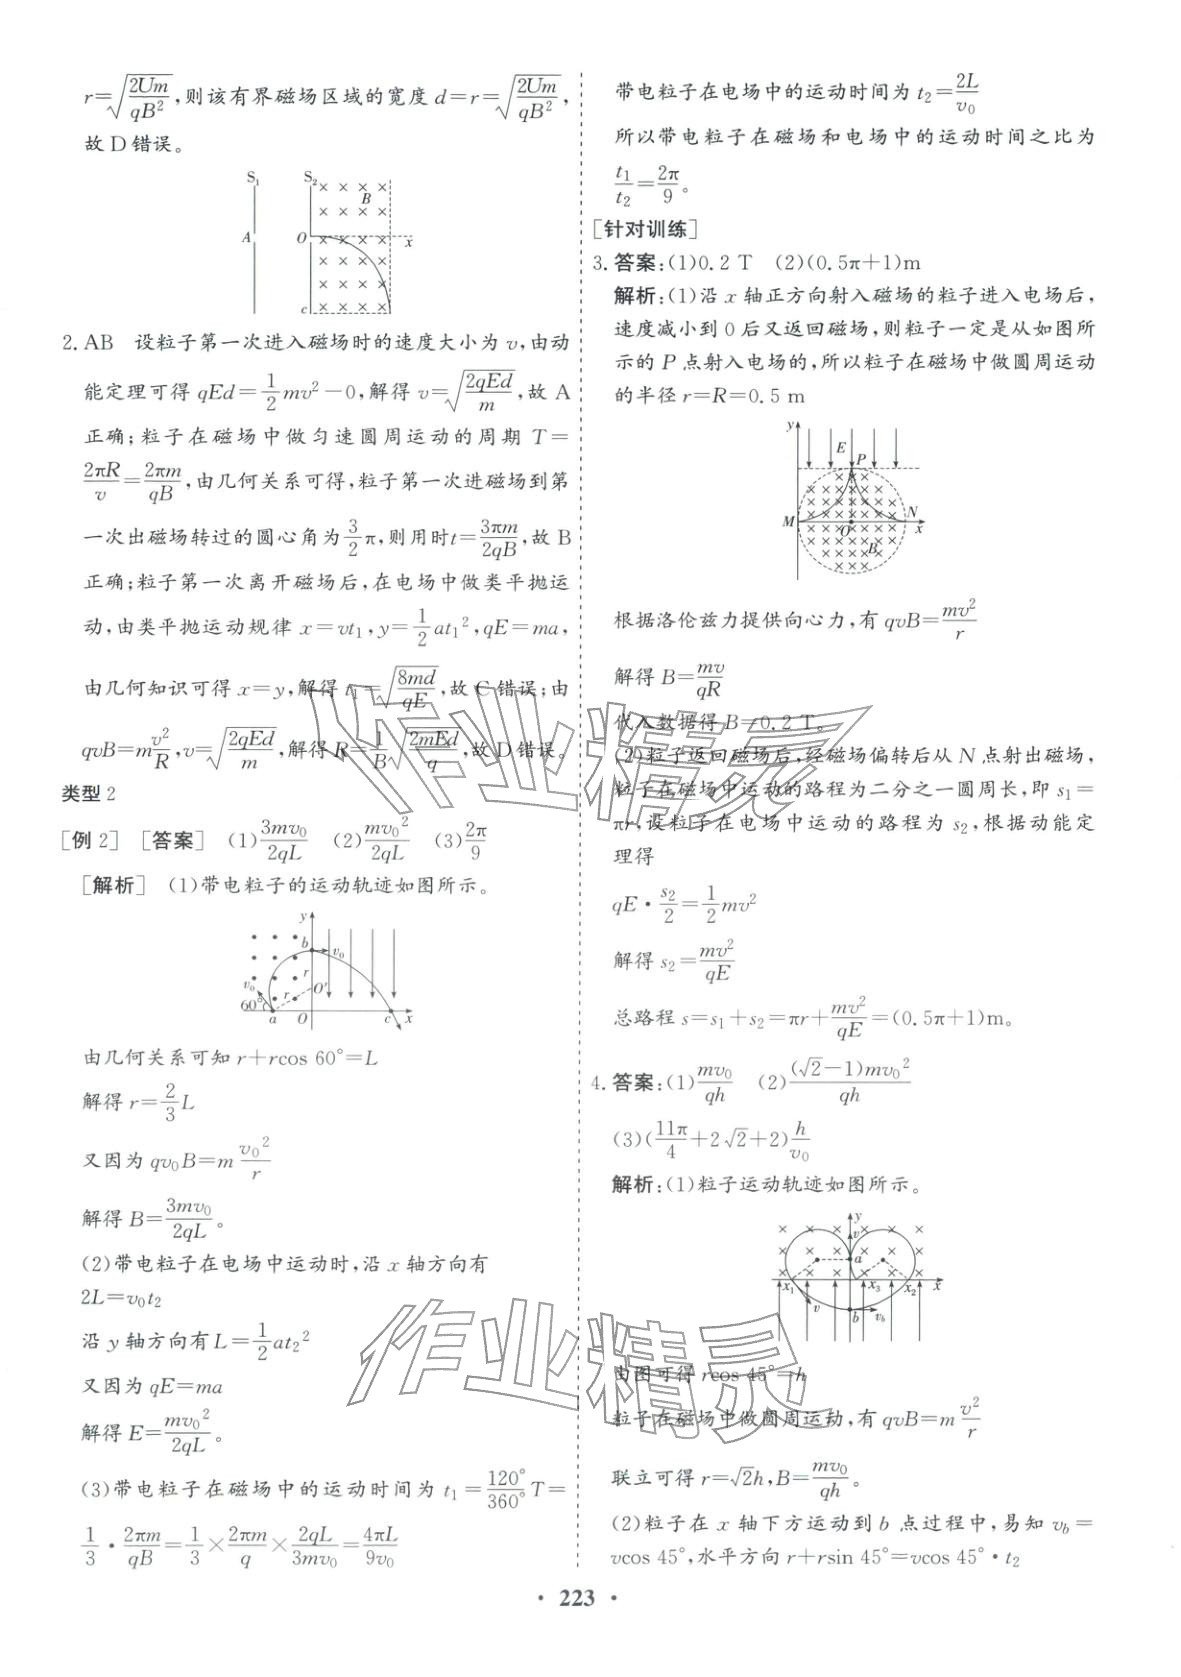 r=√(2Um/qB²),则该有界磁场区域的宽度 d=r=√(2Um/qB²),
故 D 错误。
S₁ S₂ B A O x c
2. AB 设粒子第一次进入磁场时的速度大小为 v,由动
能定理可得 qEd=1/2 mv²-0,解得 v=√(2qEd/m),故 A
正确;粒子在磁场中做匀速圆周运动的周期 T=
2πR/v=2πm/qB,由几何关系可得,粒子第一次进磁场到第
一次出磁场转过的圆心角为3/2 π,则用时t=3πm/2qB,故 B
正确;粒子第一次离开磁场后,在电场中做类平抛运
动,由类平抛运动规律 x=vt₁,y=1/2 at₁²,qE=ma,
由几何知识可得 x=y,解得 t₁=√(8md/qE),故 C 错误;由
qvB=m v²/R,v=√(2qEd/m),解得 R=1/B √(2mEd/q),故 D 错误。
类型 2
[例 2] [答案] (1)3mv₀/2qL (2)mv₀²/2qL (3)2π/9
[解析] (1)带电粒子的运动轨迹如图所示。
y b v₀ r v₀ r O′ 60° a O c x
由几何关系可知 r+rcos 60°=L
解得 r=2/3 L
又因为 qv₀B=m v₀²/r
解得 B=3mv₀/2qL。
(2)带电粒子在电场中运动时,沿 x 轴方向有
2L=v₀t₂
沿 y 轴方向有 L=1/2 at₂²
又因为 qE=ma
解得 E=mv₀²/2qL。
(3)带电粒子在磁场中的运动时间为 t₁=120°/360° T=
1/3·2πm/qB=1/3×2πm/q×2qL/3mv₀=4πL/9v₀
带电粒子在电场中的运动时间为 t₂=2L/v₀
所以带电粒子在磁场和电场中的运动时间之比为
t₁/t₂=2π/9。
[针对训练]
3. 答案:(1)0.2 T (2)(0.5π+1)m
解析:(1)沿 x 轴正方向射入磁场的粒子进入电场后,
速度减小到 0 后又返回磁场,则粒子一定是从如图所
示的 P 点射入电场的,所以粒子在磁场中做圆周运动
的半径 r=R=0.5 m
y E P M O N x B
根据洛伦兹力提供向心力,有 qvB=mv²/r
解得 B=mv/qR
代入数据得 B=0.2 T。
(2)粒子返回磁场后,经磁场偏转后从 N 点射出磁场,
粒子在磁场中运动的路程为二分之一圆周长,即 s₁=
πr,设粒子在电场中运动的路程为 s₂,根据动能定
理得
qE·s₂/2=1/2 mv²
解得 s₂=mv²/qE
总路程 s=s₁+s₂=πr+mv²/qE=(0.5π+1)m。
4. 答案:(1)mv₀/qh (2)(√2-1)mv₀²/qh
(3)(11π/4+2√2+2)h/v₀
解析:(1)粒子运动轨迹如图所示。
y v a x₁ x₃ x₂ x v b v_b
由图可得 rcos 45°=h
粒子在磁场中做圆周运动,有 qvB=m v²/r
联立可得 r=√2h,B=mv₀/qh。
(2)粒子在 x 轴下方运动到 b 点过程中,易知 v_b=
vcos 45°,水平方向 r+rsin 45°=vcos 45°·t₂
· 223 ·
作业精灵
作业精灵